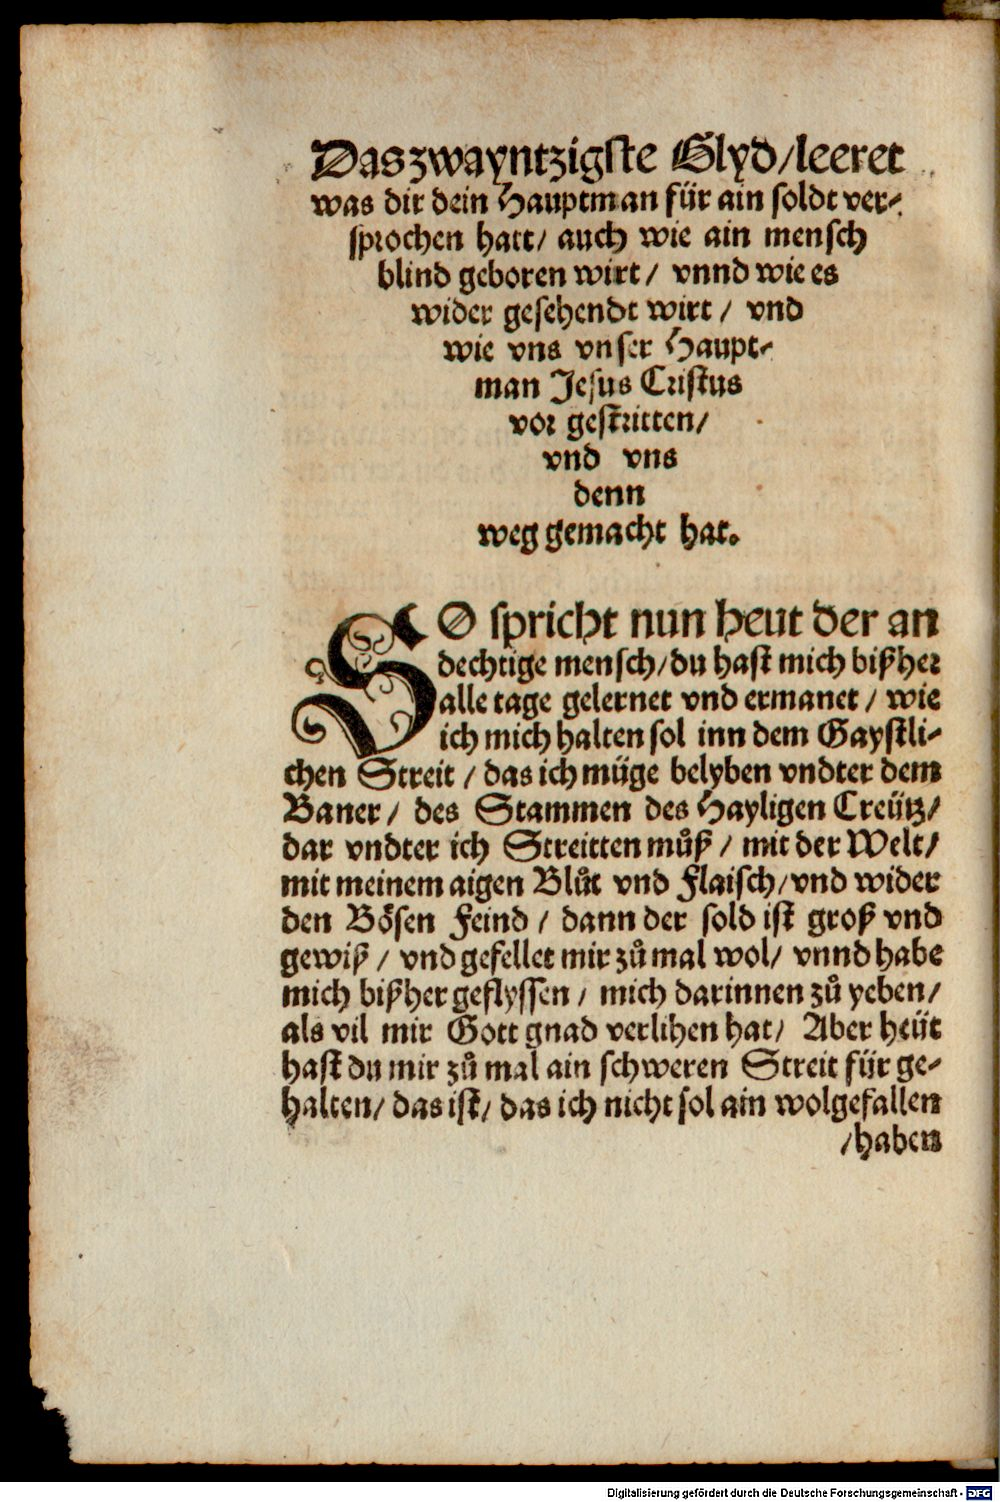 Das zwayntzigste Glyd/leeret
was dir dein Hauptman für ain soldt ver⸗
sprochen hatt/ auch wie ain mensch
blind geboren wirt/ vnnd wie es
wider gesehendt wirt/ vnd
wie vns vnser Haupt⸗
man Jesus Cristus
vor gestritten/
vnd vns
denn
weg gemacht hat.
SO spricht nun heut der an
dechtige mensch/du hast mich bißher
alle tage gelernet vnd ermanet/ wie
ich mich halten sol inn dem Gaystli⸗
chen Streit/ das ich müge belyben vndter dem
Baner/ des Stammen des Hayligen Creütz/
dar vndter ich Streitten můß/ mit der Welt/
mit meinem aigen Blůt vnd Flaisch/vnd wider
den Bösen Feind/ dann der sold ist groß vnd
gewiß/ vnd gefellet mir zů mal wol/ vnnd habe
mich bißher geflyssen/ mich darinnen zů yeben/
als vil mir Gott gnad verlihen hat/ Aber heüt
hast du mir zů mal ain schweren Streit für ge⸗
halten/ das ist/ das ich nicht sol ain wolgefallen
/haben
Digitalisierung gefördert durch die Deutsche Forschungsgemeinschaft - DFG